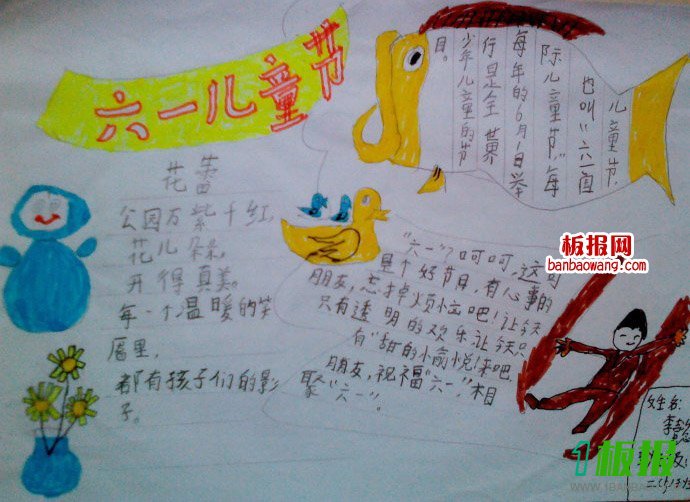 六一儿童节
儿童节,
也叫“六一国
际儿童节,”每
每年的6月1日举
行是全世界
少年儿童的节
目。
花蕾
公园万紫千红,
花儿朵朵。
开得真美。
每一个温暖的笑
厝里,
都有孩子们的影
子。
“六一”?呵呵,这可
是个好节目,有心事的
朋友,忘掉烦恼吧!让今天
只有透明的欢乐让今天只
有“甜的小愉悦”来吧.
朋友,祝福“六一”,相
聚“六一”。
板报网
banbaowang.com
姓名:
李
二(5)班
1板报